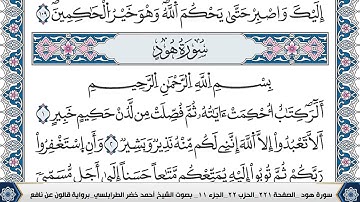 إِلَيْكَ وَاصْبِرْ حَتَّىٰ يَحْكُمَ اللَّهُ وَهُوَ خَيْرُ الْحَاكِمِينَ ١٠٩
سُورَةُ هُودٍ
بِسْمِ اللَّهِ الرَّحْمَٰنِ الرَّحِيمِ
أَلَٓرۖ كِتَٰبٌ أُحْكِمَتْ ءَايَٰتُهُۥ ثُمَّ فُصِّلَتْ مِن لَّدُنْ حَكِيمٍ خَبِيرٍ ١
أَلَّا تَعْبُدُوٓاْ إِلَّا اَللَّهَ إِنَّنِے لَكُم مِّنْهُ نَذِيرٌ وَبَشِيرٌ ٢ وَأَنِ اِسْتَغْفِرُواْ
رَبَّكُمْ ثُمَّ تُوبُوٓاْ إِلَيْهِ يُمَتِّعْكُم مَّتَٰعاً حَسَناً إِلَىٰٓ أَجَلٍ مُّسَمّىٗ
سورة هود _ الصفحة ٢٢١_الحزب ٢٢_الجزء ١١_ بصوت الشيخ أحمد خضر الطرابلسي _برواية قالون عن نافع